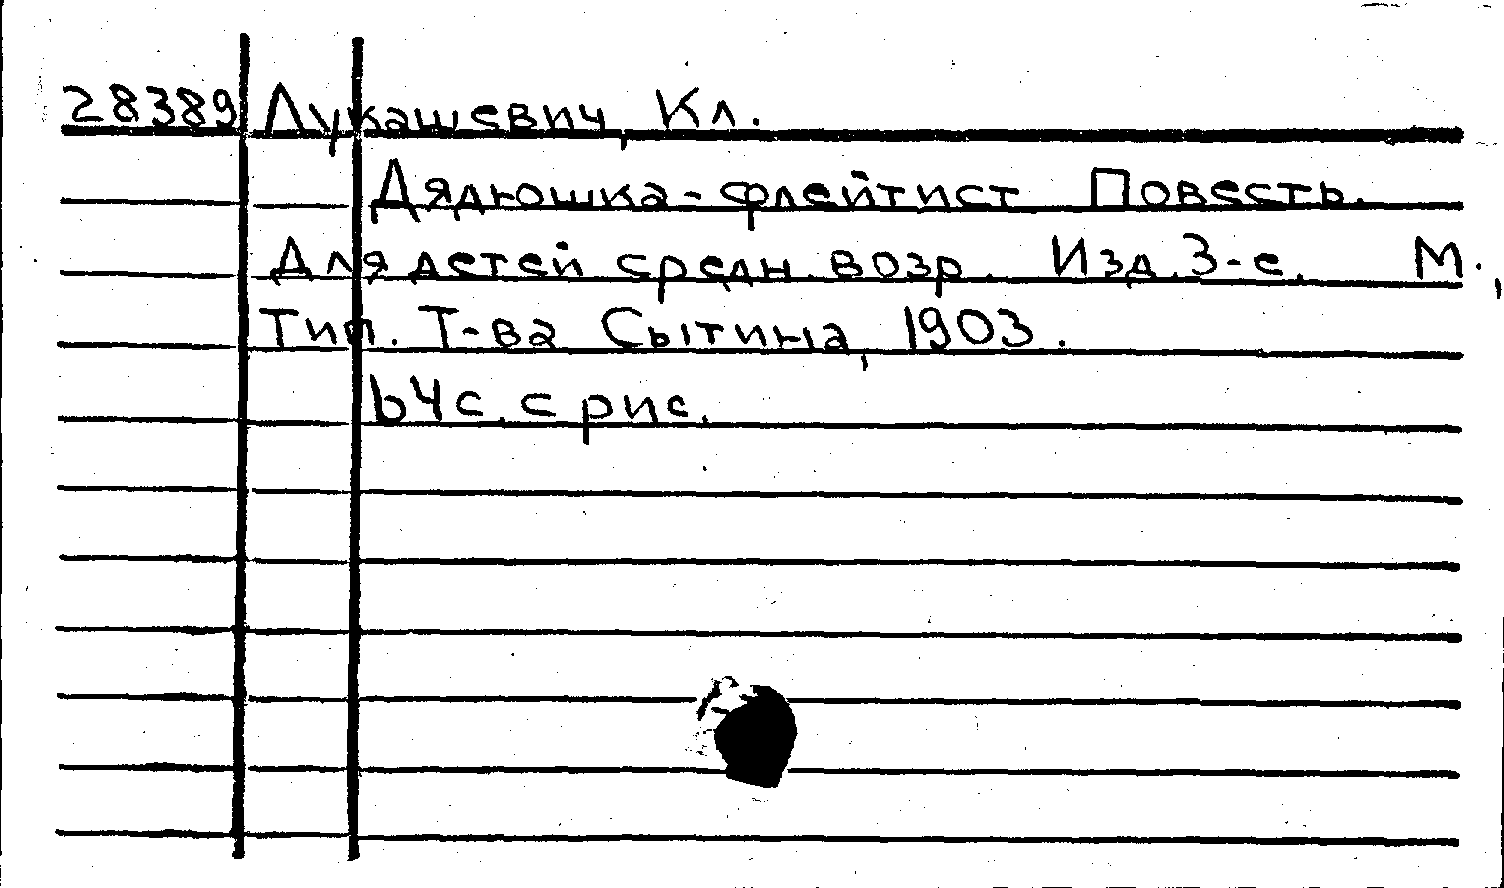 28389 Лукашевич, Кл.
Дядюшка-флейтист Повесть.
Для детей средн. возр. Изд. 3-е. М.,
Тип. Т-ва Сытина, 1903.
64 с. с рис.